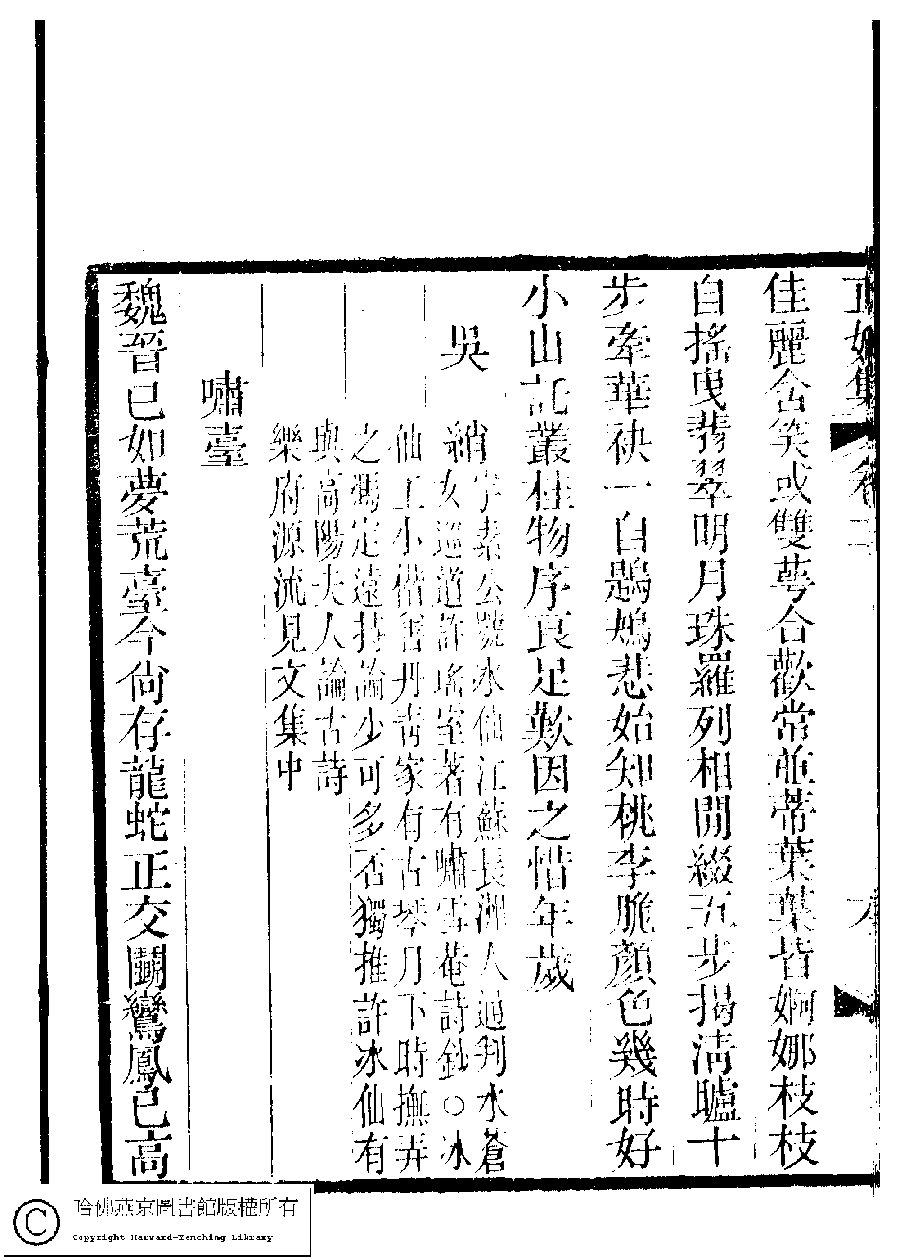 正始集 卷二
佳麗含笑或雙萼合歡常並蒂葉葉皆婀娜枝枝
自搖曳翡翠明月珠羅列相間綴五步揭清矑十
步牽華袂一自鶗鴂悲始知桃李脆顏色幾時好
小山託叢桂物序良足歎因之惜年歲
吳綃字素公號冰仙江蘇長洲人通判水蒼
女巡道許瑤室著有嘯雪菴詩鈔○冰
仙工小楷善丹青家有古琴月下時撫弄
之馮定遠持論少可多否獨推許冰仙有
與高陽夫人論古詩
樂府源流見文集中
嘯臺
魏晉已如夢荒臺今尙存龍蛇正交鬭鸞鳳已高
哈佛燕京圖書館版權所有
Copyright Harvard-Yenching Library